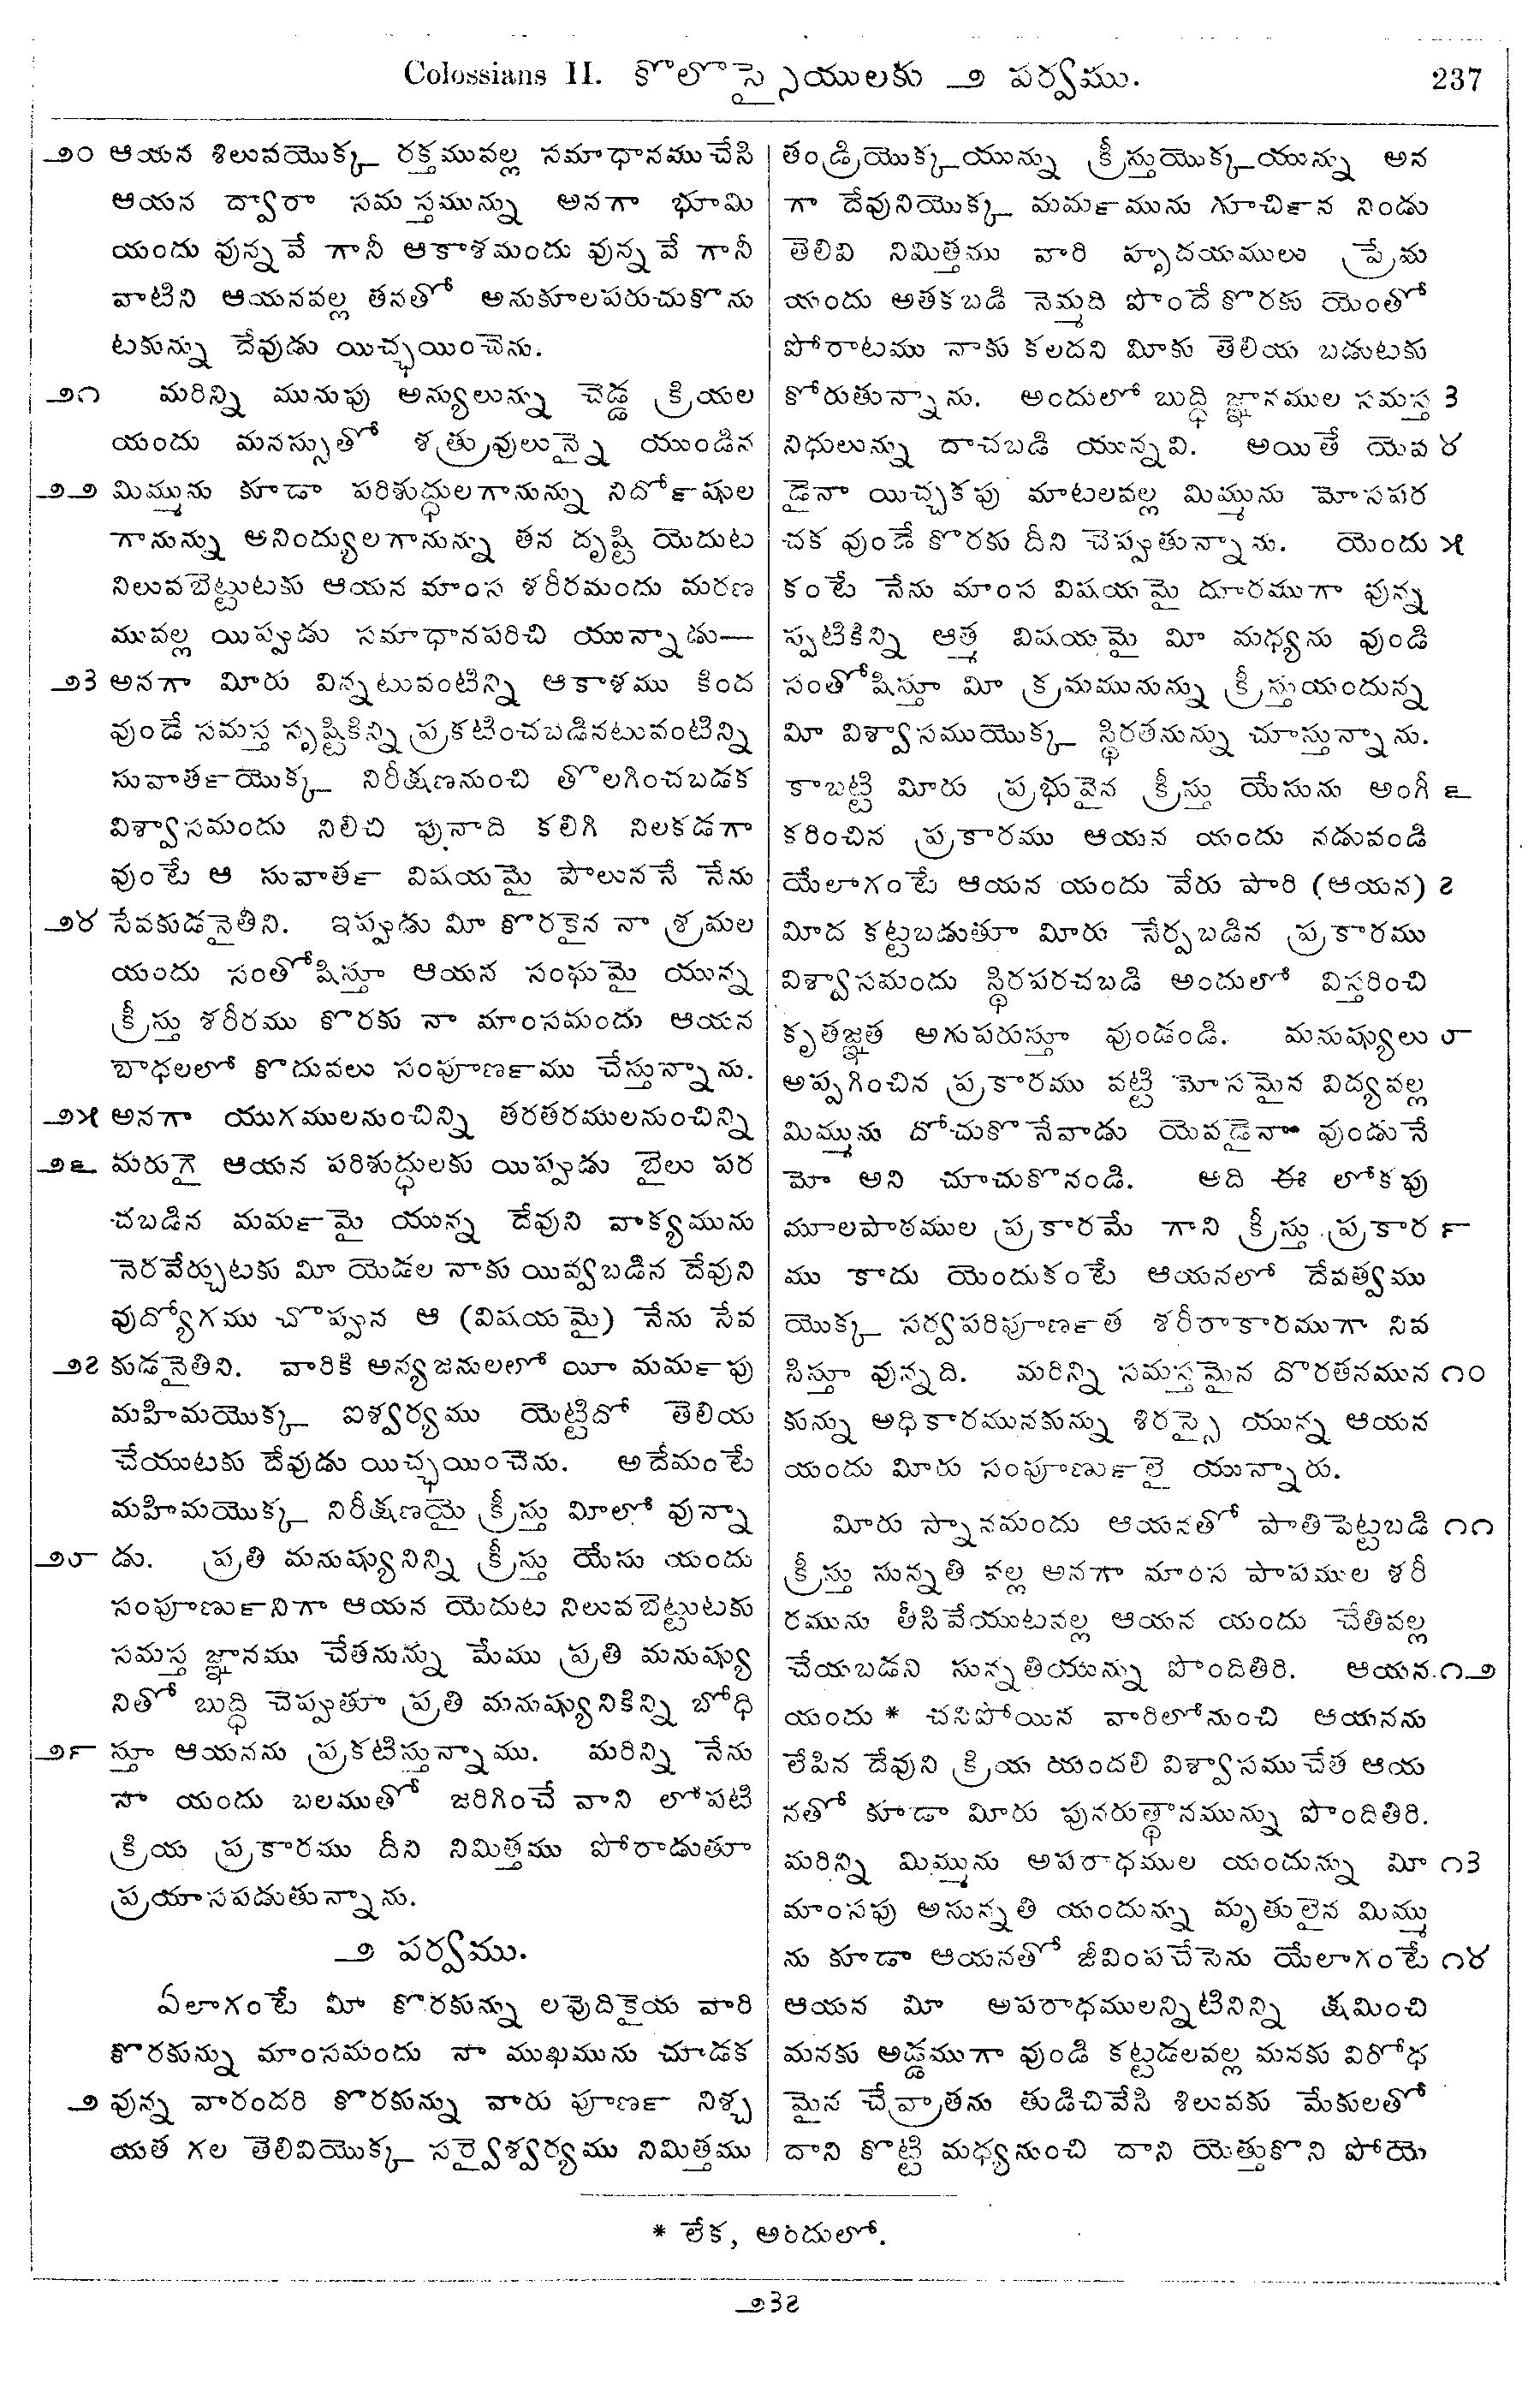 Colossians II. కొలొస్సైయులకు ౨ పర్వము. 237
౨౦ ఆయన శిలువయొక్క రక్తమువల్ల సమాధానముచేసి
ఆయన ద్వారా సమస్తమున్ను అనగా భూమి
యందు వున్నవే గానీ ఆకాశమందు వున్నవే గానీ
వాటిని ఆయనవల్ల తనతో అనుకూలపరుచుకొను
టకున్ను దేవుడు యిచ్ఛయించెను.
౨౧ మరిన్ని మునుపు అన్యులున్ను చెడ్డ క్రియల
యందు మనస్సుతో శత్రువులున్నై యుండిన
౨౨ మిమ్మును కూడా పరిశుద్ధులగానున్ను నిదోర్‍షుల
గానున్ను అనింద్యులగానున్ను తన దృష్టి యెదుట
నిలువబెట్టుటకు ఆయన మాంస శరీరమందు మరణ
మువల్ల యిప్పుడు సమాధానపరిచి యున్నాడు—
౨౩ అనగా మీరు విన్నటువంటిన్ని ఆకాశము కింద
వుండే సమస్త సృష్టికిన్ని ప్రకటించబడినటువంటిన్ని
సువాతర్‍యొక్క నిరీక్షణనుంచి తొలగించబడక
విశ్వాసమందు నిలిచి పునాది కలిగి నిలకడగా
వుంటే ఆ సువాతర్‍ విషయమై పౌలుననే నేను
౨౪ సేవకుడనైతిని. ఇప్పుడు మీ కొరకైన నా శ్రమల
యందు సంతోషిస్తూ ఆయన సంఘమై యున్న
క్రీస్తు శరీరము కొరకు నా మాంసమందు ఆయన
బాధలలో కొదువలు సంపూణర్‍ము చేస్తున్నాను.
౨౫ అనగా యుగములనుంచిన్ని తరతరములనుంచిన్ని
౨౬ మరుగై ఆయన పరిశుద్ధులకు యిప్పుడు బైలు పర
చబడిన మమర్‍మై యున్న దేవుని వాక్యమును
నెరవేర్చుటకు మీ యెడల నాకు యివ్వబడిన దేవుని
వుద్యోగము చొప్పున ఆ (విషయమై) నేను సేవ
౨౭ కుడనైతిని. వారికి అన్యజనులలో యీ మమర్‍పు
మహిమయొక్క ఐశ్వర్యము యెట్టిదో తెలియ
చేయుటకు దేవుడు యిచ్ఛయించెను. అదేమంటే
మహిమయొక్క నిరీక్షణయై క్రీస్తు మీలో వున్నా
౨౮ డు. ప్రతి మనుష్యునిన్ని క్రీస్తు యేసు యందు
సంపూణుర్‍నిగా ఆయన యెదుట నిలువబెట్టుటకు
సమస్త జ్ఞానము చేతనున్ను మేము ప్రతి మనుష్యు
నితో బుద్ధి చెప్పుతూ ప్రతి మనుష్యునికిన్ని బోధి
౨౯ స్తూ ఆయనను ప్రకటిస్తున్నాము. మరిన్ని నేను
నా యందు బలముతో జరిగించే వాని లోపటి
క్రియ ప్రకారము దీని నిమిత్తము పోరాడుతూ
ప్రయాసపడుతున్నాను.
౨ పర్వము.
ఏలాగంటే మీ కొరకున్ను లవుదికైయ వారి
కొరకున్ను మాంసమందు నా ముఖమును చూడక
౨ వున్న వారందరి కొరకున్ను వారు పూణర్‍ నిశ్చ
యత గల తెలివియొక్క సర్వైశ్వర్యము నిమిత్తము
తండ్రియొక్కయున్ను క్రీస్తుయొక్కయున్ను అన
గా దేవునియొక్క మమర్‍మును గూచిర్‍న నిండు
తెలివి నిమిత్తము వారి హృదయములు ప్రేమ
యందు అతకబడి నెమ్మది పొందే కొరకు యెంతో
పోరాటము నాకు కలదని మీకు తెలియ బడుటకు
కోరుతున్నాను. అందులో బుద్ధి జ్ఞానముల సమస్త ౩
నిధులున్ను దాచబడి యున్నవి. అయితే యెవ ౪
డైనా యిచ్చకపు మాటలవల్ల మిమ్మును మోసపర
చక వుండే కొరకు దీని చెప్పుతున్నాను. యెందు ౫
కంటే నేను మాంస విషయమై దూరముగా వున్న
ప్పటికిన్ని ఆత్మ విషయమై మీ మధ్యను వుండి
సంతోషిస్తూ మీ క్రమమునున్ను క్రీస్తుయందున్న
మీ విశ్వాసముయొక్క స్థిరతనున్ను చూస్తున్నాను.
కాబట్టి మీరు ప్రభువైన క్రీస్తు యేసును అంగీ ౬
కరించిన ప్రకారము ఆయన యందు నడువండి
యేలాగంటే ఆయన యందు వేరు పారి (ఆయన) ౭
మీద కట్టబడుతూ మీరు నేర్పబడిన ప్రకారము
విశ్వాసమందు స్థిరపరచబడి అందులో విస్తరించి
కృతజ్ఞత అగుపరుస్తూ వుండండి. మనుష్యులు ౮
అప్పగించిన ప్రకారము వట్టి మోసమైన విద్యవల్ల
మిమ్మును దోచుకొనేవాడు యెవడైనా వుండునే
మో అని చూచుకొనండి. అది ఈ లోకపు
మూలపాఠముల ప్రకారమే గాని క్రీస్తు ప్రకార ౯
ము కాదు యెందుకంటే ఆయనలో దేవత్వము
యొక్క సర్వపరిపూణర్‍త శరీరాకారముగా నివ
సిస్తూ వున్నది. మరిన్ని సమస్తమైన దొరతనమున ౧౦
కున్ను అధికారమునకున్ను శిరస్సై యున్న ఆయన
యందు మీరు సంపూణుర్‍లై యున్నారు.
మీరు స్నానమందు ఆయనతో పాతిపెట్టబడి ౧౧
క్రీస్తు సున్నతి వల్ల అనగా మాంస పాపముల శరీ
రమును తీసివేయుటవల్ల ఆయన యందు చేతివల్ల
చేయబడని సున్నతియున్ను పొందితిరి. ఆయన ౧౨
యందు * చనిపోయిన వారిలోనుంచి ఆయనను
లేపిన దేవుని క్రియ యందలి విశ్వాసముచేత ఆయ
నతో కూడా మీరు పునరుత్థానమున్ను పొందితిరి.
మరిన్ని మిమ్మును అపరాధముల యందున్ను మీ ౧౩
మాంసపు అసున్నతి యందున్ను మృతులైన మిమ్ము
ను కూడా ఆయనతో జీవింపచేసెను యేలాగంటే ౧౪
ఆయన మీ అపరాధములన్నిటినిన్ని క్షమించి
మనకు అడ్డముగా వుండి కట్టడలవల్ల మనకు విరోధ
మైన చేవ్రాతను తుడిచివేసి శిలువకు మేకులతో
దాని కొట్టి మధ్యనుంచి దాని యెత్తుకొని పోయె
* లేక, అందులో.
౨౩౭